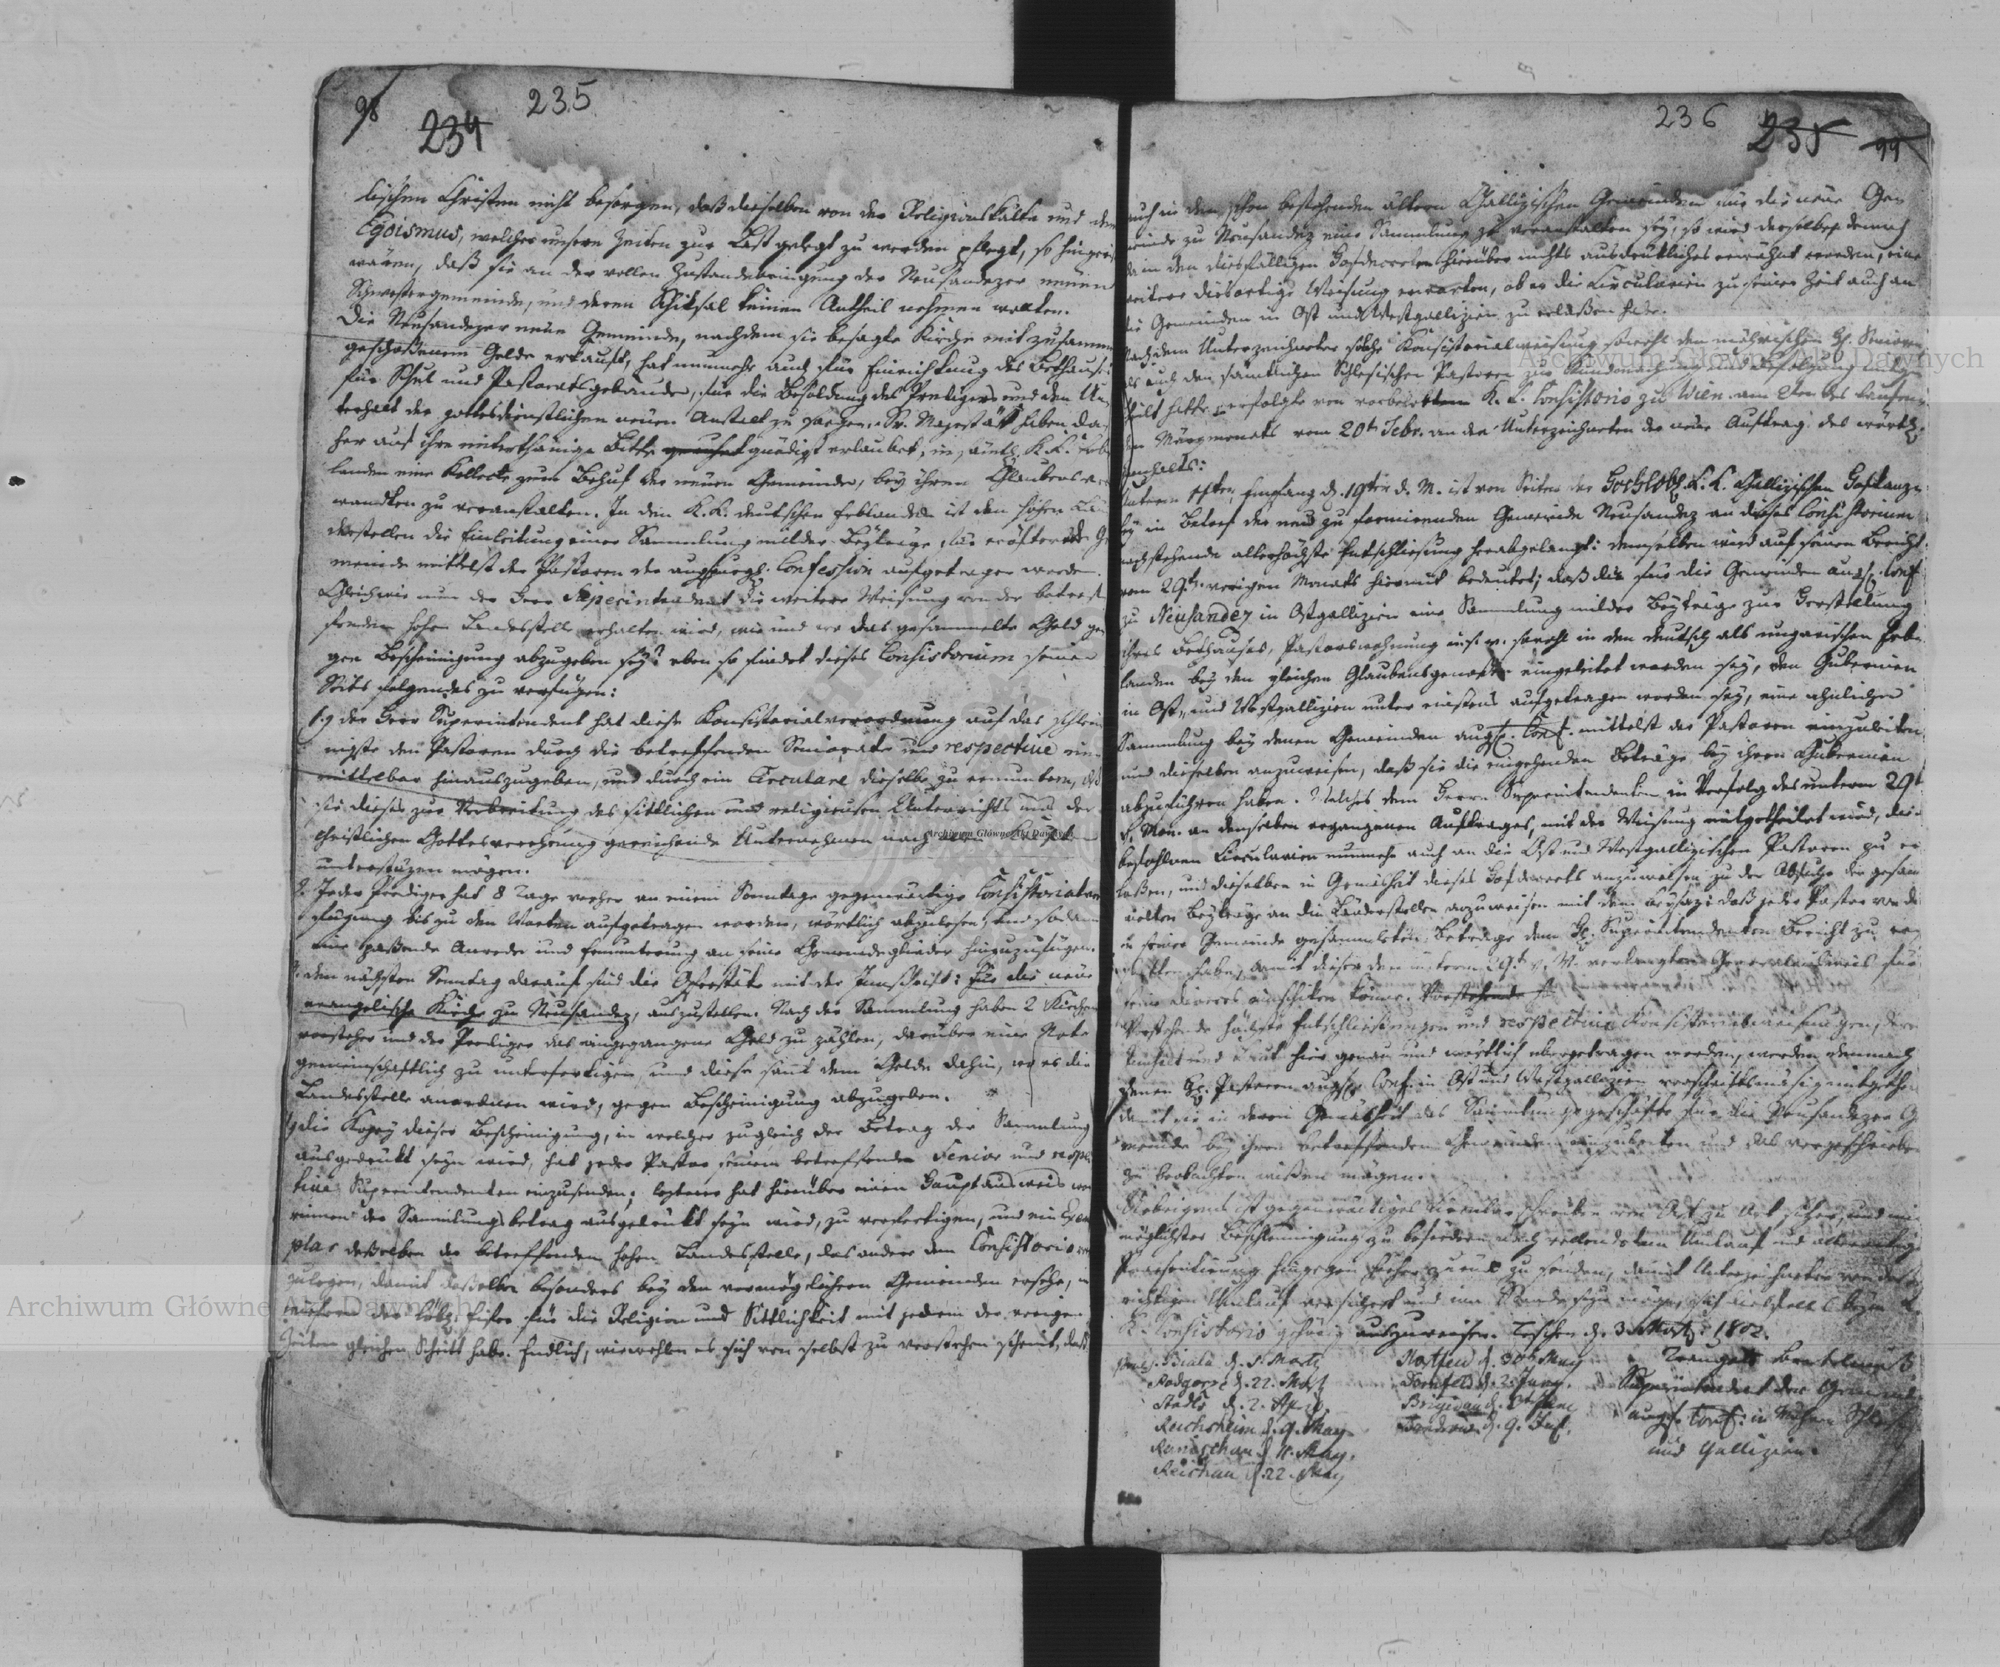 98
234
235
lischen Christen nicht besorgen, daß dieselben von der Religionskälte und dem
Egoismus, welches unsern Zeiten zur Last gelegt zu werden pflegt, so hingeris
wären, daß sie an der vollen Zustandebringung der Neusandezer neuen
Schwestergemeinde, und deren Schiksal keinen Antheil nehmen wollten.
Die Neusandezer neue Gemeinde, nachdem sie besagte Kirche mit zusamm
geschoßenem Gelde erkauft, hat nunmehr auch für Einrichtung des Bethauses
für Schul und Pastoratsgebäude, für die Besoldung des Predigers und den Un
terhalt der gottesdienstlichen neuen Anstalt zu sorgen. Sr. Majestät haben da
her auf ihre unterthänige Bitte gnädigst erlaubet, in sämtl. K. K. Erb
landen eine Kollecte zum Behuf der neuen Gemeinde, bey ihren Glaubensver
wandten zu veranstalten. In den K. K. deutschen Erblanden ist den hohen Län
derstellen die Einleitung einer Sammlung milder Beyträge für erösterte Ge
meinde mittelst der Pastoren der augspurg. Confession aufgetragen worden.
Gleichwie nun der Herr Superintendent die weitere Weisung von der betref
fenden hohen Landesstelle erhalten wird, wie und wo das gesammelte Geld ge
gen Bescheinigung abzugeben sey? eben so findet dieses Consistorium seiner
Seits folgendes zu verfügen:
1.) der Herr Superintendent hat diese Konsistorialverordnung auf das schleu
nigste den Pastoren durch die betreffenden Seniorate und respective un
mittelbar hinauszugeben, und durch ein Circulare dieselbe zu ermuntern, daß
sie dieses zur Verbreitung des sittlichen und religieusen Unterrichts und der
christlichen Gottesverehrung gereichende Unternehmen nach Kräften
unterstüzen mögen.
2. Jeder Prediger hat 8 Tage vorher an einem Sonntage gegenwärtige Consistorialver
fügung bis zu den Worten aufgetragen worden, wörtlich abzulesen, und sodann
eine paßende Anrede und Ermunterung an seine Gemeindeglieder hinzuzufügen.
3. den nächsten Sonntag darauf sind die Opferstöke mit der Innschrift: Für die neue
evangelische Kirche zu Neusandez, auszustellen. Nach der Sammlung haben 2 Kirchen
vorsteher und der Prediger das eingegangene Geld zu zählen, darüber eine Note
gemeinschaftlich zu unterfertigen, und diese samt dem Gelde dahin, wo es die
Landesstelle anordnen wird, gegen Bescheinigung abzugeben.
4) die Kopey dieser Bescheinigung, in welcher zugleich der Betrag der Sammlung
ausgedrükt seyn wird, hat jeder Pastor seinem betreffenden Senior und respec
tive Superintendenten einzusenden; lezterer hat hierüber einen Hauptausweis wor
rinnen der Sammlungsbetrag ausgedrükt seyn wird, zu verfertigen, und ein Exem
plar deßelben der betreffenden hohen Landesstelle, das andere dem Consistorio vor
zulegen, damit daßelbe besonders bey den vermöglichern Gemeinden ersehe, in
wiefern der löbl. Eifer für die Religion und Sittlichkeit mit jedem der vorigen
Zeiten gleichen Schritt halte. Endlich, wiewohlen es sich von selbst zu verstehen scheint, daß
236
235
99
auch in den schon bestehenden ältern Gallizischen Gemeinden für die neue Gem
einde zu Neusandez eine Sammlung zu veranstalten sey, so wird derselbe dennoch
da in den diesfälligen Hofdecreten hierüber nichts ausdrükliches erwähnt worden, eine
weitere diesortige Weisung erwarten, ob er die Circularien zu seiner Zeit auch an
die Gemeinden in Ost und Westgallizien zu erlaßen habe.
Nachdem Unterzeichneter solche Konsistorialweisung sowohl den mährischen H. Senioren
als auch den sämtlichen Schlesischen Pastoren zur Kundmachung und Befolgung mitge
theilt hatte, erfolgte von vorbelobtem K. K. Consistorio zu Wien am 2ten des laufen
den Märzmonats vom 20t Febr. an den Unterzeichneten der neue Auftrag des wörtl.
Innhalts:
Unterm Empfang d. 19ten d. M. ist von Seiten der Hochlöbl. K. K. Gallizischen Hofkanz
ley in Betref der neu zu formirenden Gemeinde Neusandez an dieses Consistorium
nachstehende allerhöchste Entschließung herabgelangt: demselben wird auf seinen Bericht
vom 29t. vorigen Monats hiemit bedeutet; daß die für die Gemeinden augsp. Conf.
zu Neusandez in Ostgallizien eine Sammlung milder Beyträge zur Herstellung
ihres Bethauses, Pastorswohnung u. s. w. sowohl in den deutsch als ungarischen Erb
landen bey den gleichen Glaubensgenoßen eingeleitet worden sey, den Gubernien
in Ost- und Westgallizien unter einstens aufgetragen worden sey, eine ähnliche
Sammlung bey denen Gemeinden augsp. Conf. mittelst der Pastoren einzuleiten,
und dieselben anzuweisen, daß sie die eingehenden Beträge bey ihren Gubernien
abzuführen haben. Welches dem Herrn Superintendenten in Verfolg des unterm 29t
v. Mon. an denselben ergangenen Auftrages, mit der Weisung mitgetheilet wird, die
befohlnen Circularien nunmehr auch an die Ost und Westgallizischen Pastoren zu er
laßen, und dieselben in Gemäsheit dieses Hofdecrets anzuweisen zu der Abfuhr der gesam
melten Beyträge an die Länderstellen anzuweisen mit dem Beysaz: daß jeder Pastor von de
in seiner Gemeinde gesammleten Beträge dem H. Superintendenten Bericht zu er
statten habe, damit dieser den unterm 29t v. M. verlangten Generalausweis für
seine Diöces einschiken könne. Vorstehende
Vorstehende höchste Entschließungen und respective Konsistorialweisungen, deren
Innhalt und Laut hier genau und wörtlich übergetragen worden, werden demnach
denen H. Pastoren augsp. Conf. in Ost und Westgallizien vorschriftsmäsig mitgethei
damit sie in deren Gemäsheit das Sammlungsgeschäfte für die Neusandezer Ge
meinde bey ihren betreffenden Gemeinden einzuleiten und das vorgeschriebene
zu beobachten wißen mögen.
Uebrigens ist gegenwärtiges Circularschreiben von Ort zu Ort sicher, und mit
möglichster Beschleunigung zu befördern nach vollendetem Umlauf und
Praesentirung hingegen hieher zurük zu senden, damit Unterzeichneter von deßen
richtigen Umlauf versichert und im Stande seyn möge, sich bey
K. Consistorio gehörig auszuweisen. Teschen d. 3. Mart: 1802.
praes. Biala d. 5 Mart
Podgorze d. 22. Mart
Stadlo d. 2. April
Reichsheim d. 9. May
Ranischau d. 11. May.
Reichau d. 22. May
Hartfeld d. 30t May
Dornfeld d. 2. Juny.
Brigidau d.
d. 9. Jul.
Traugott Bartelmuß
Superintendent der Gemeind
augsp. Conf: in Mähren Schlesien
und Gallizien.
Archiwum Główne Akt Dawnych
Archiwum Główne Akt Dawnych
Archiwum Główne Akt Dawnych